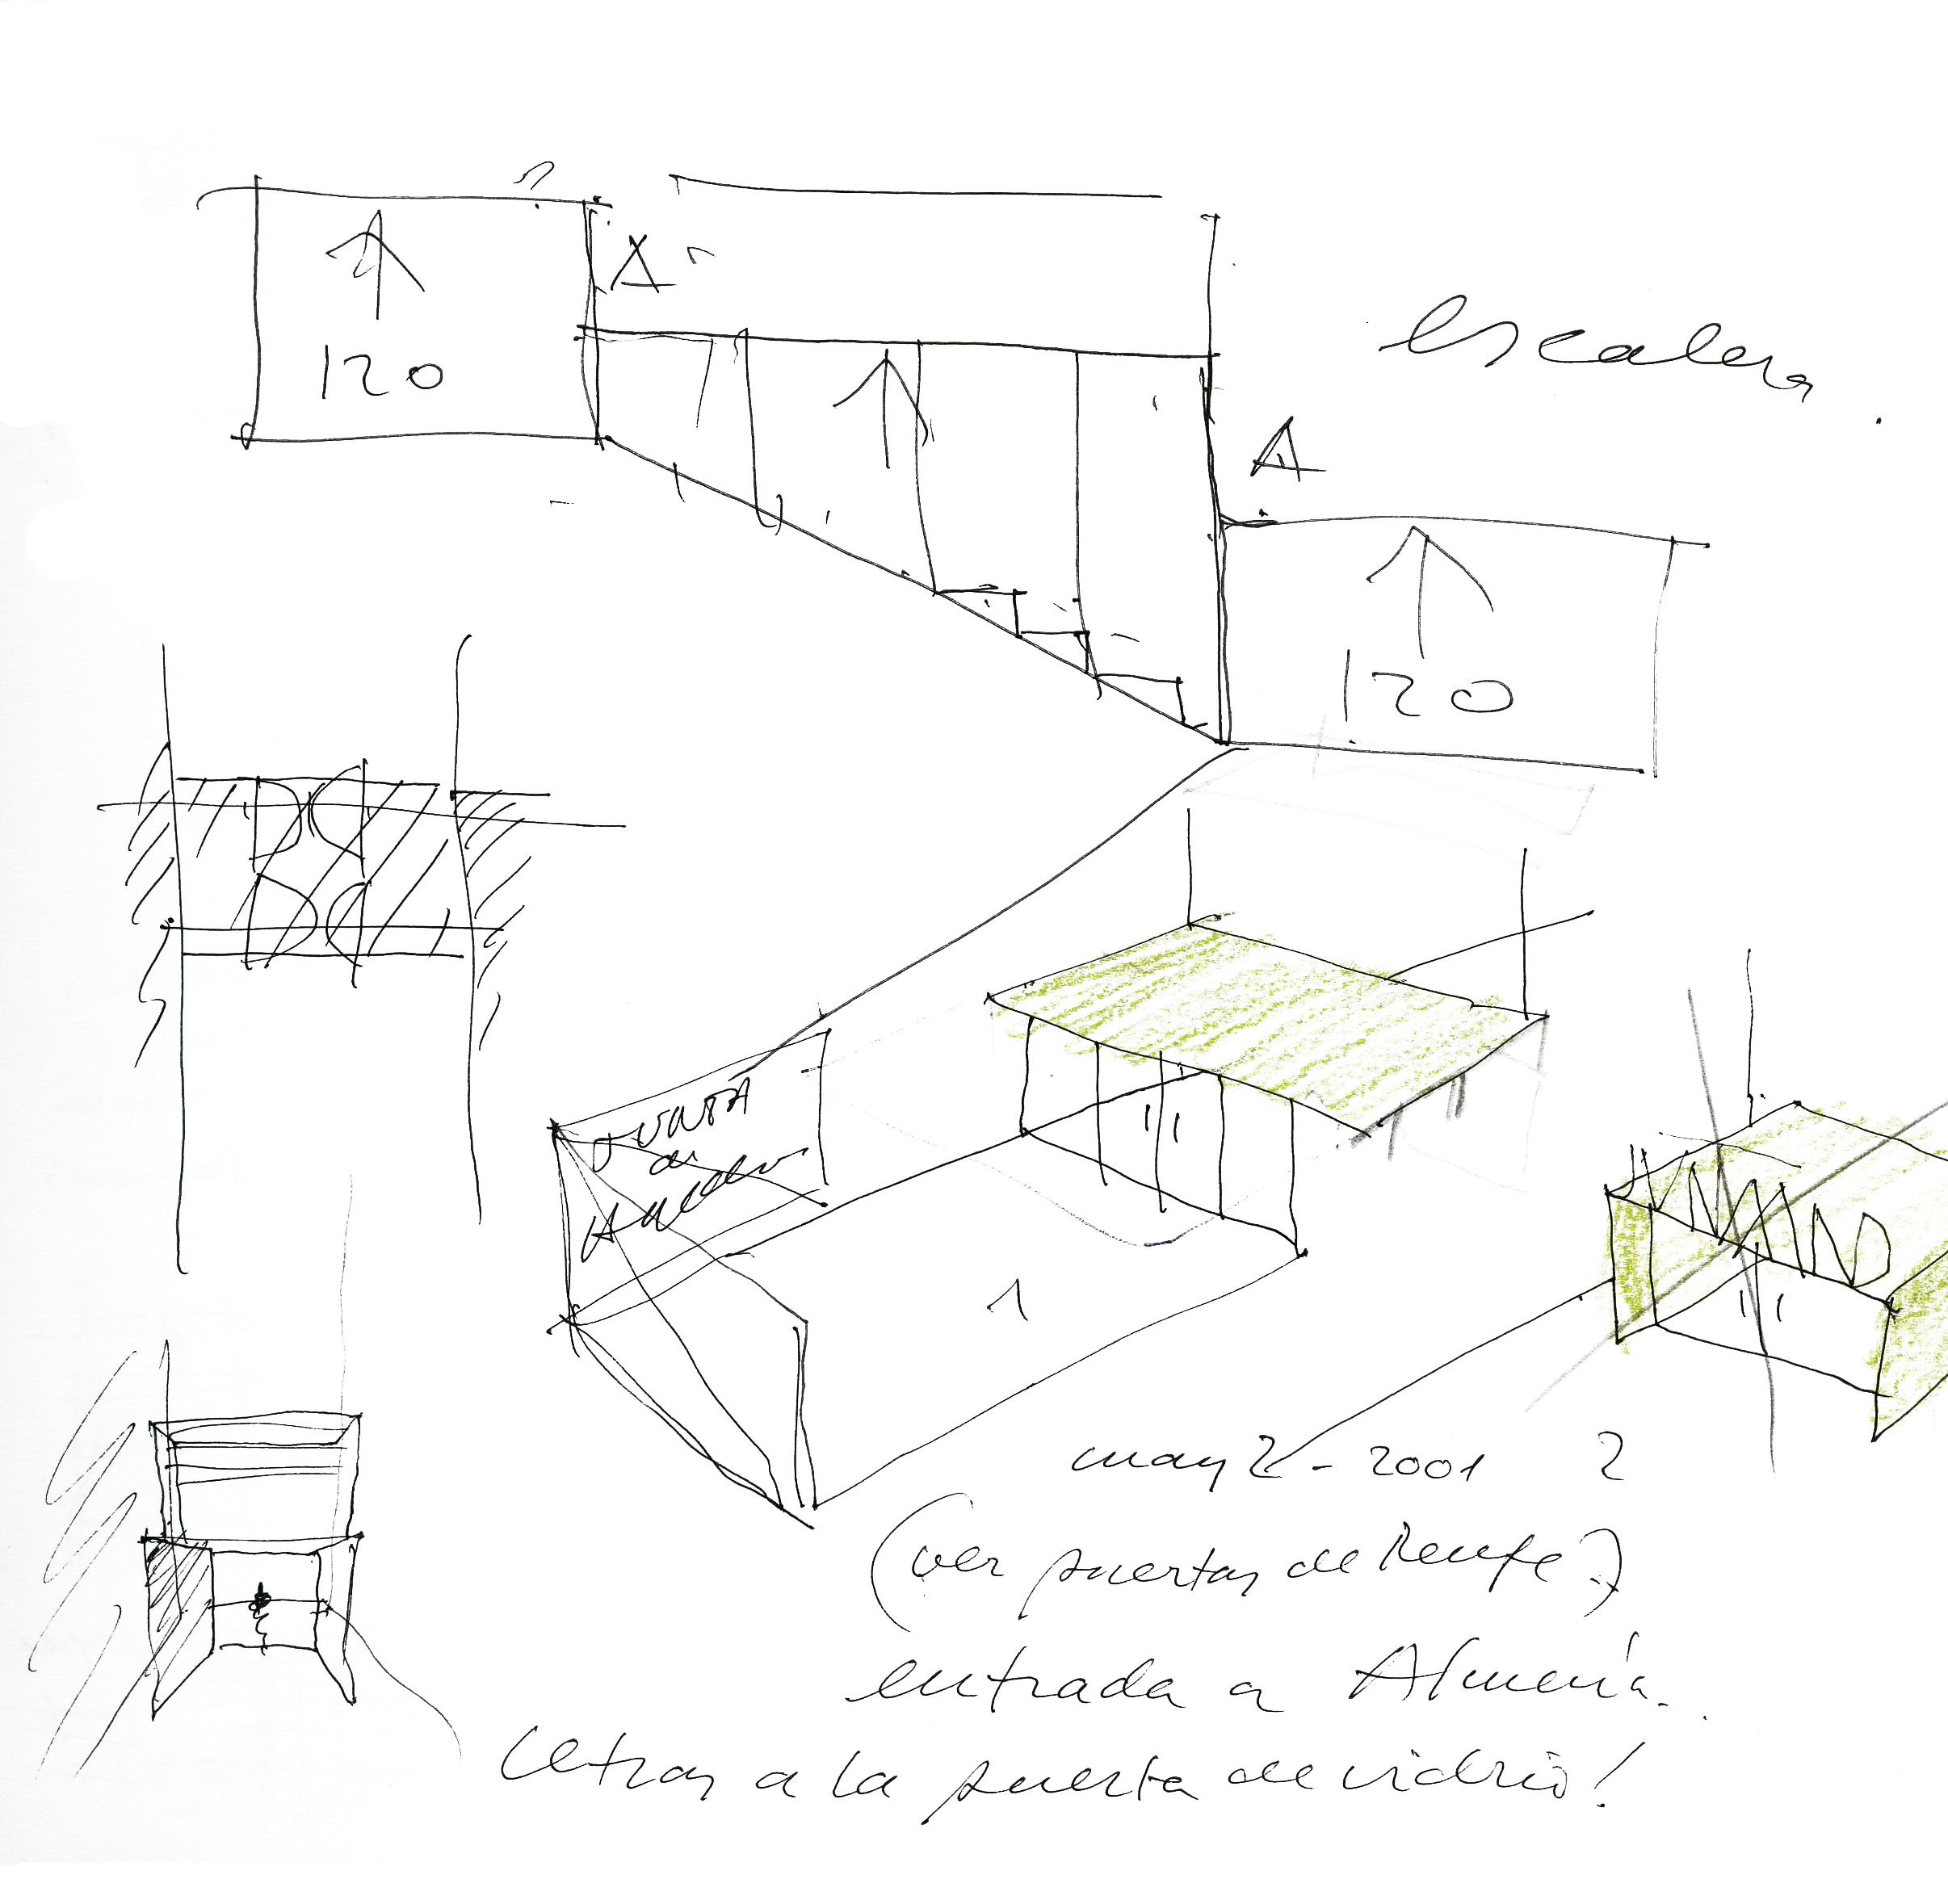 ?
A
120
escalera
A
120
JUNTA
de
1
may 2 - 2001 2
(ver puertas de Renfe?)
entrada a Almería.
letras a la puerta de vidrio!